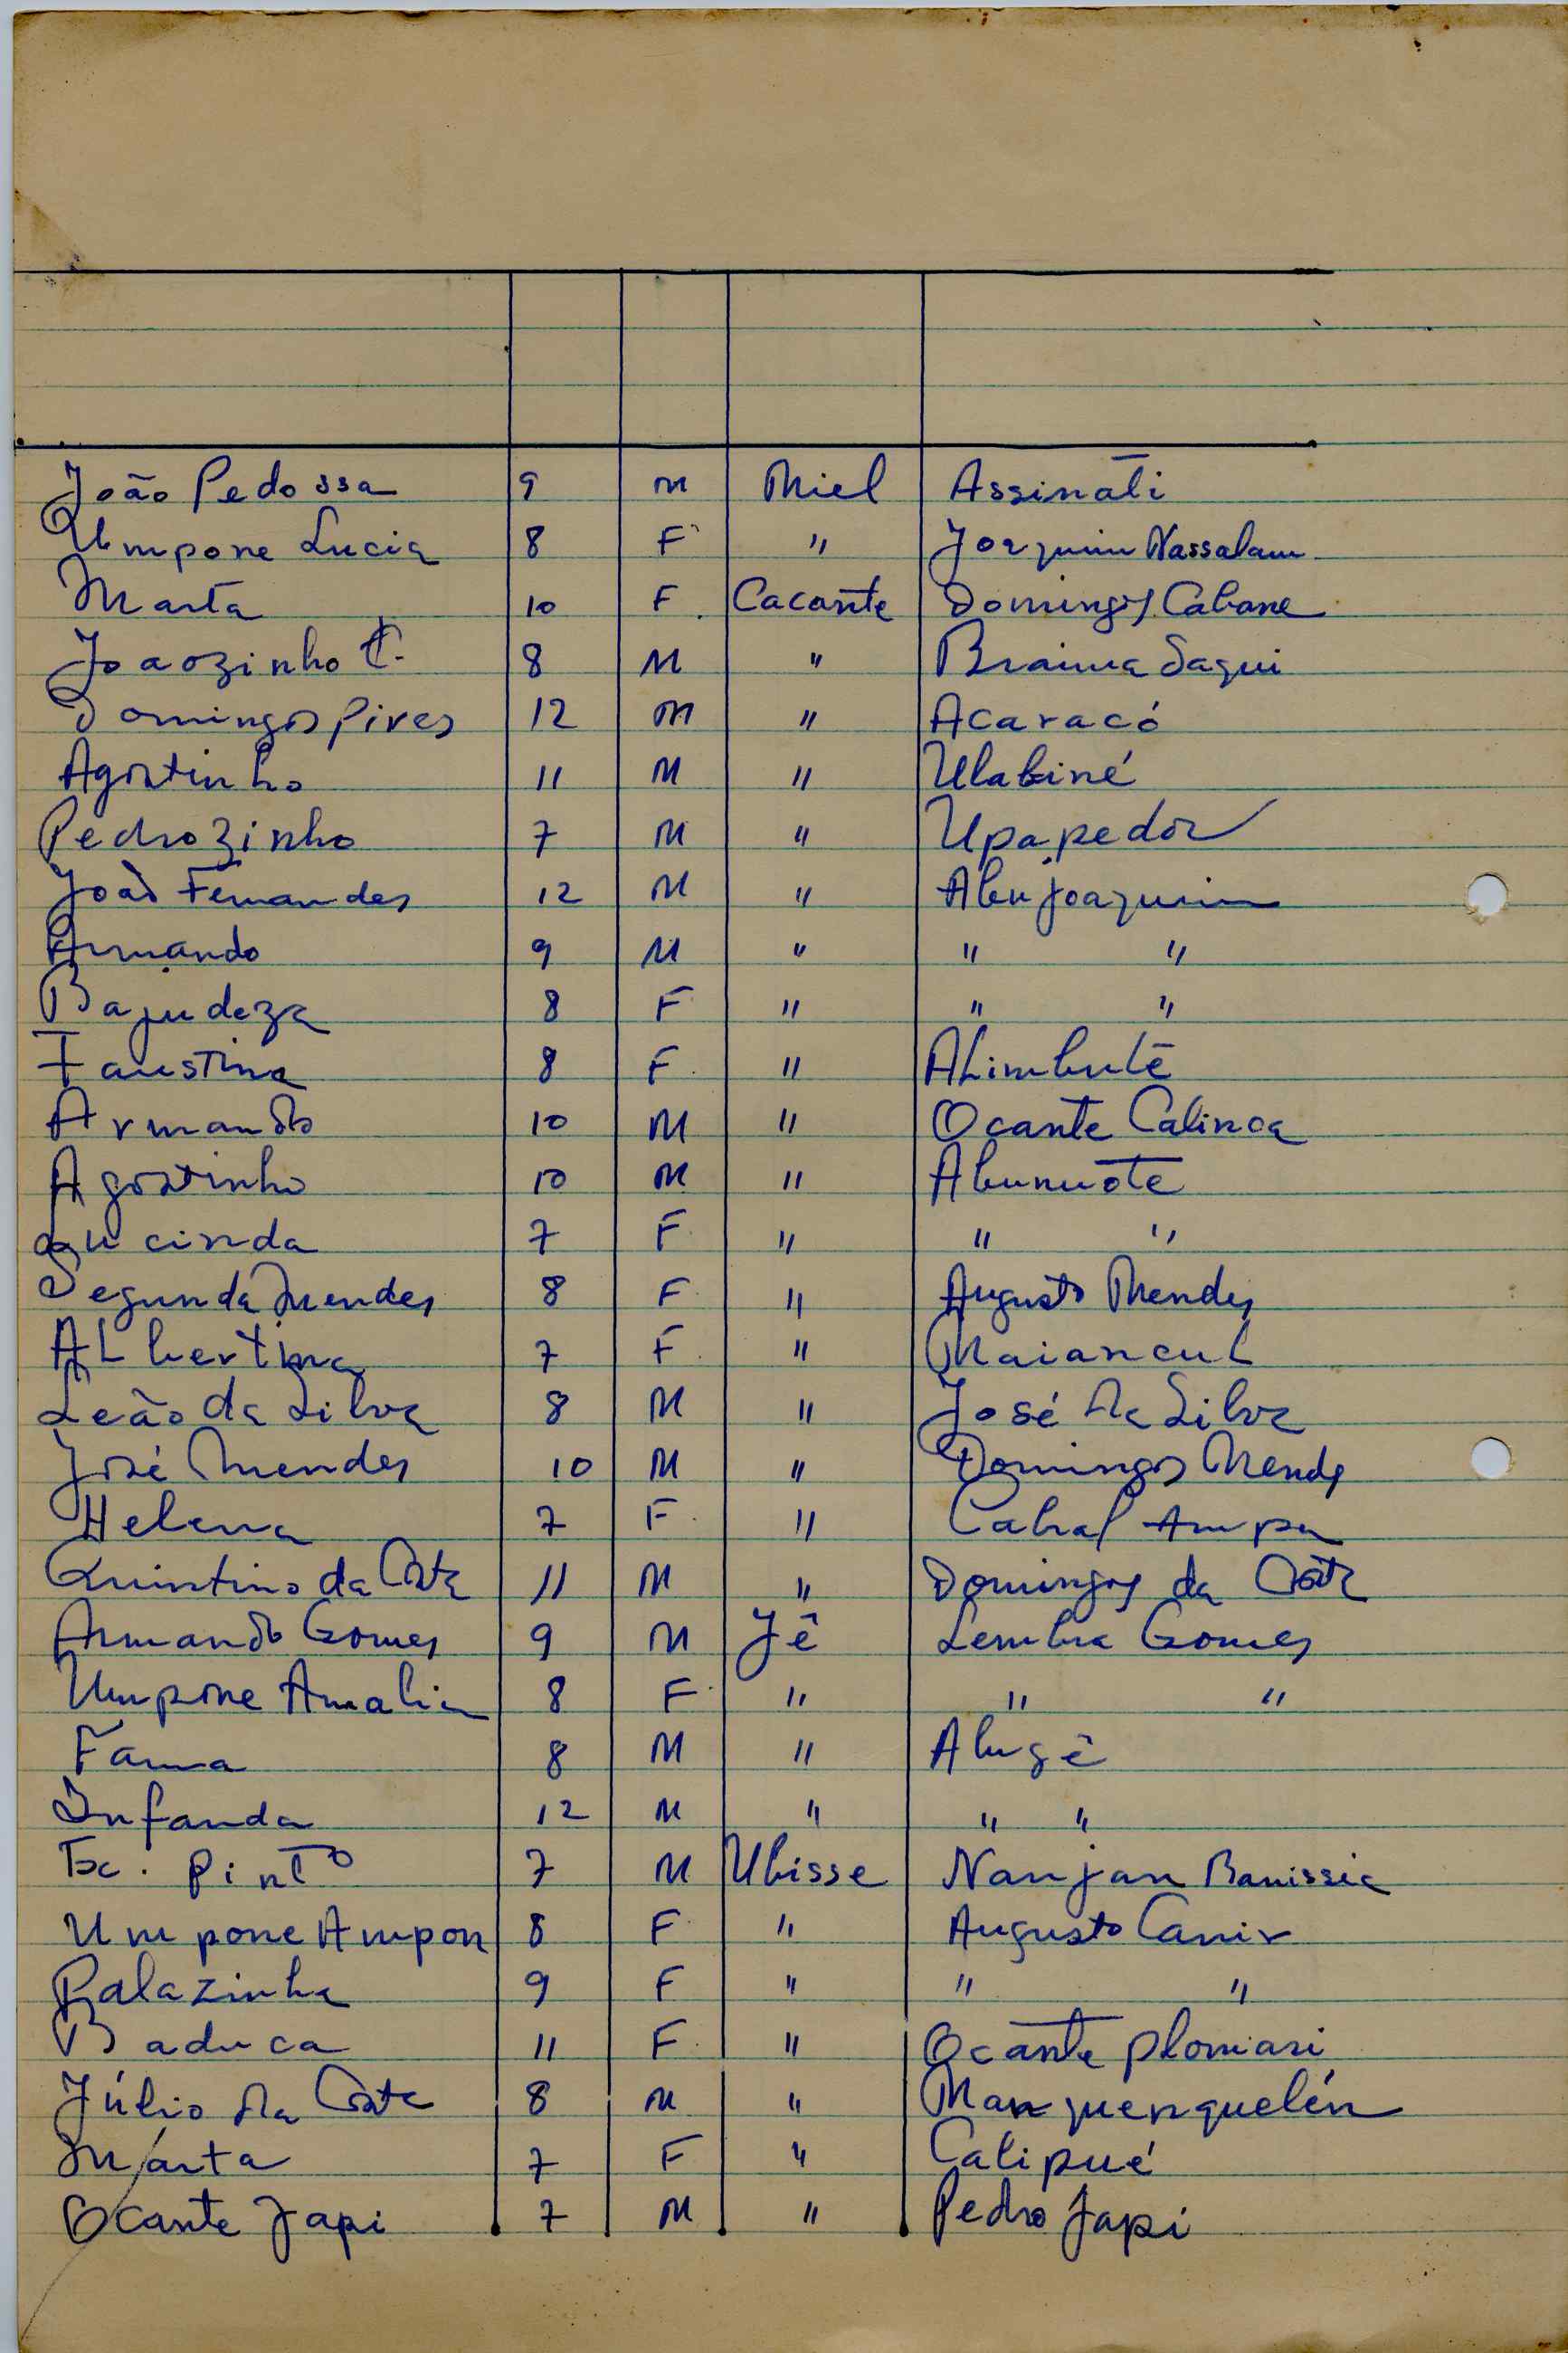 João Pedossa 9 M Miel Assinati
Umpone Lucia 8 F " Joaquim Nassalam
Marta 10 F Cacante Domingos Cabane
Joaozinho C. 8 M " Braima Sagui
Domingos Pires 12 M " Acaracó
Agostinho 11 M " Ulabiné
Pedrozinho 7 M " Upapedor
João Fernandes 12 M " Abujoaquim
Armando 9 M " " "
Bajudeza 8 F " " "
Faustina 8 F " ALimbutê
Armando 10 M " Ocante Calinca
Agostinho 10 M " Abunuote
Lucinda 7 F " " "
Segunda Mendes 8 F " Augusto Mendes
ALbertina 7 F " Maiancul
Leão da Silva 8 M " José da Silva
José Mendes 10 M " Domingos Mendes
Helena 7 F " Cabral Ampa
Quintino da Costa 11 M " Domingos da Costa
Armando Gomes 9 M Jê Lembra Gomes
Umpone Amalia 8 F " " "
Fama 8 M " Abugê
Infanda 12 M " " "
Pinto 7 M Ubisse Nanjan Banissia
Umpone Ampon 8 F " Augusto Camir
Balazinha 9 F " " "
Baduca 11 F " Ocante plomari
Júlio da Costa 8 M " Manquenquelén
Márta 7 F " Calipué
Ocante Japi 7 M " Pedro Japi